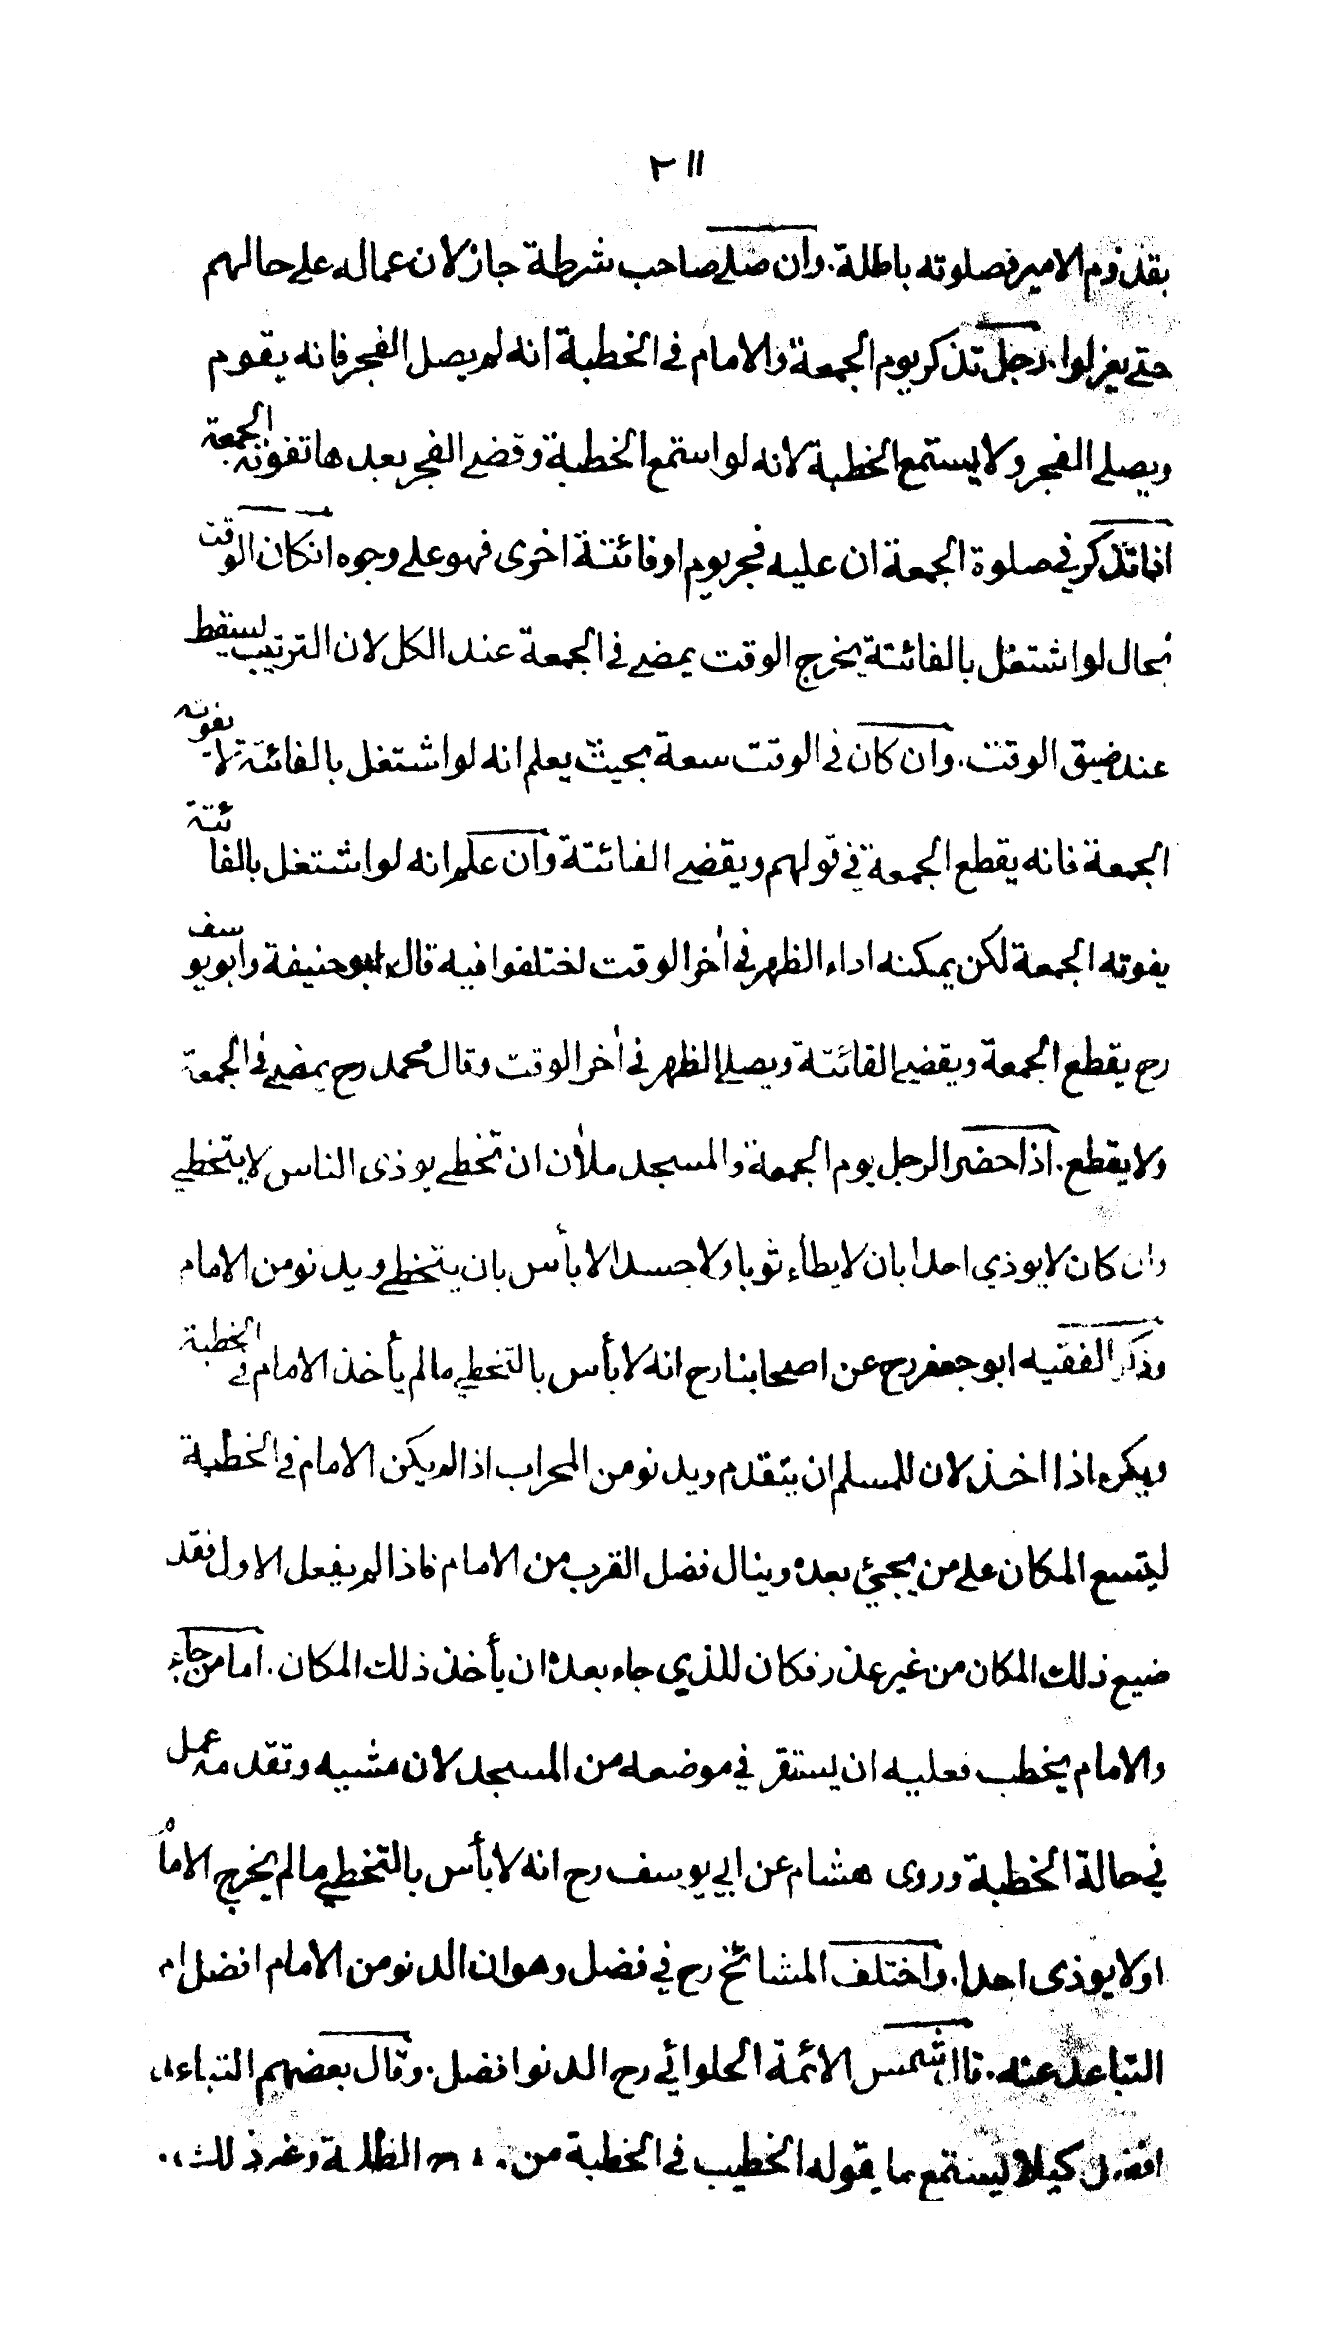 ٢١١
بقدوم الامير فصلوته باطلة. وان صلے صاحب شرطة جاز لان عماله علے حالهم
حتے يعزلوا. رجل تذكر يوم الجمعة والامام فى الخطبة انه لم يصل الفجر فانه يقوم
ويصلے الفجر ولا يستمع الخطبة لانه لو استمع الخطبة وقضے الفجر بعدها تفوته الجمعة
اذا تذكر في صلوة الجمعة ان عليه فجر يوم او فائتة اخرى فهو علے وجوه ان كان الوقت
بحال لو اشتغل بالفائتة يخرج الوقت يمضے فى الجمعة عند الكل لان الترتيب يسقط
عند ضيق الوقت. وان كان فى الوقت سعة بحيث يعلم انه لو اشتغل بالفائتة لا يفوته
الجمعة فانه يقطع الجمعة في قولهم ويقضے الفائتة وان علم انه لو اشتغل بالفائتة
يفوته الجمعة لكن يمكنه اداء الظهر فى أخر الوقت اختلفوا فيه قال ابو حنيفة وابويوسف
رح يقطع الجمعة ويقضے الفائتة ويصلے الظهر فى أخر الوقت وقال محمد رح يمضے فى الجمعة
ولا يقطع. اذا حضر الرجل يوم الجمعة والمسجد ملأن ان تخطے يوذى الناس لا يتخطے
وان كان لا يوذي احدا بان لا يطاء ثوبا ولا جسدا لا بأس بان يتخطے ويدنو من الامام
وذكر الفقيه ابو جعفر رح عن اصحابنا رح انه لا بأس بالتخطے ما لم يأخذ الامام فى الخطبة
ويكره اذا اخذ لان للمسلم ان يتقدم ويدنو من المحراب اذا لم يكن الامام فى الخطبة
ليتسع المكان علے من يجيئ بعده وينال فضل القرب من الامام فاذا لم يفعل الاول فقد
ضيع ذلك المكان من غير عذر فكان للذي جاء بعده ان يأخذ ذلك المكان. اما من جاء
والامام يخطب فعليه ان يستقر في موضعه من المسجد لان مشيه وتقدمه عمل
في حالة الخطبة وروى هشام عن ابي يوسف رح انه لا بأس بالتخطے ما لم يخرج الامام
او لا يوذى احدا. واختلف المشائخ رح في فضل وهو ان الدنو من الامام افضل ام
التباعد عنه. قال شمس الائمة الحلوائي رح الدنو افضل. وقال بعضهم التباعد
افضل كيلا يستمع ما يقوله الخطيب فى الخطبة من الظلمة وغير ذلك.